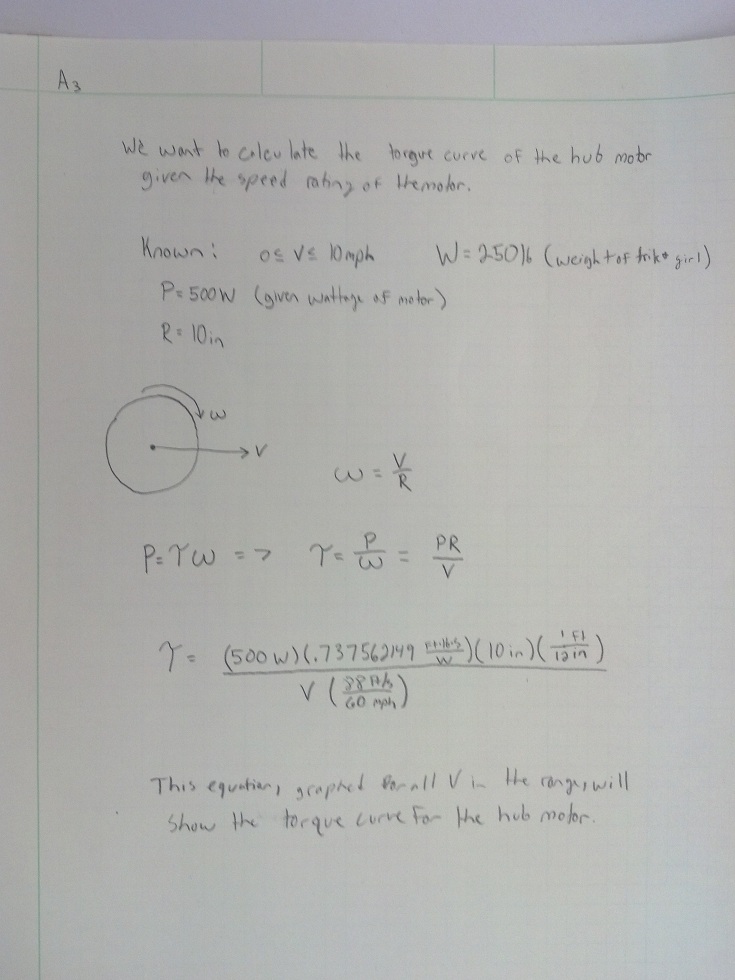 A3
We want to calculate the torque curve of the hub motor
given the speed rating of the motor.
Known: 0≤ V≤ 10mph W=250lb (weight of trike girl)
P=500W (given wattage of motor)
R=10in
ω
V
ω = V/R
P=τω => τ= P/ω = PR/V
τ= (500W)(.737562149 ft·lb/s/W)(10in)(1ft/12in) / V(88ft/s/60mph)
This equation, graphed for all V in the range, will
show the torque curve for the hub motor.